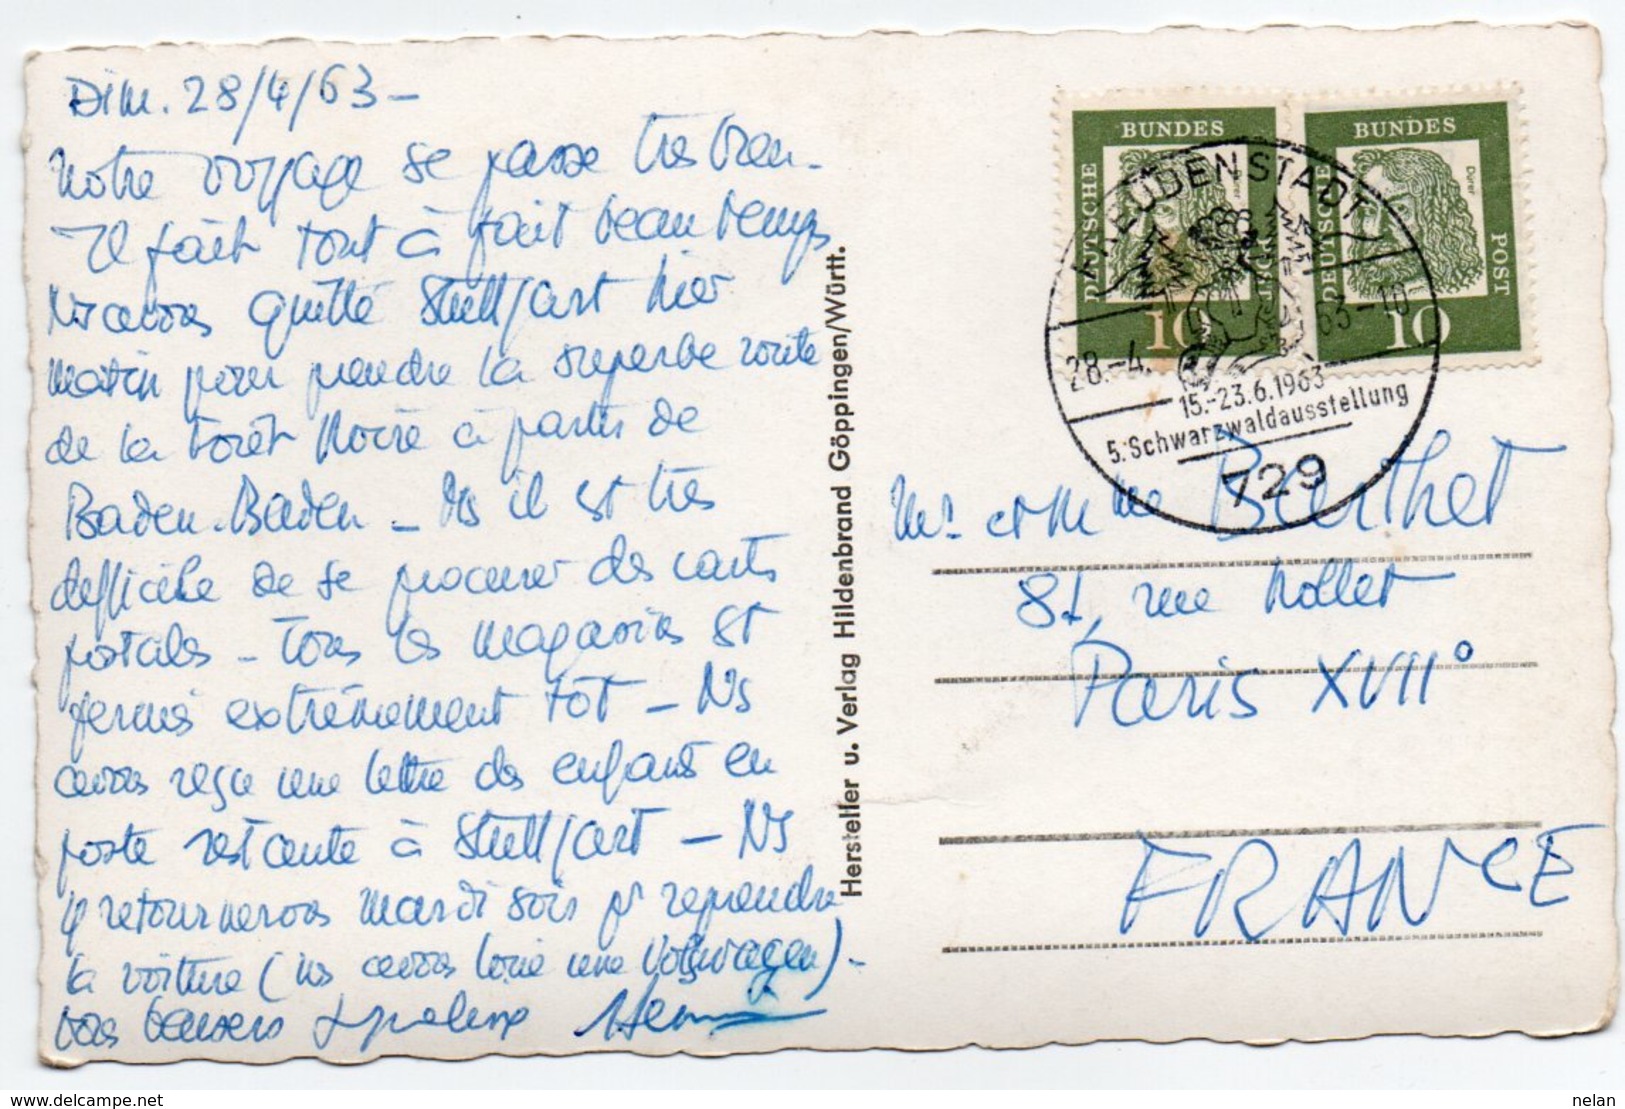 Dim. 28/4/63 -
Notre voyage se passe très bien -
Il fait tout à fait beau temps
Ns avons quitté Stuttgart hier
matin pour prendre la superbe route
de la Forêt Noire à partir de
Baden-Baden - Ms il est très
difficile de se procurer des cartes
postales - Tous les magasins st
fermés extrêmement tôt - Ns
avons reçu une lettre des enfants en
poste restante à Stuttgart - Ns
y retournerons mardi soir pr reprendre
la voiture (ns avons loué une Volkswagen) -
bons baisers
Hersteller u. Verlag Hildenbrand Göppingen/Württ.
DEUTSCHE BUNDES POST
Dürer
10
DEUTSCHE BUNDES POST
Dürer
10
FREUDENSTADT 1
28.-4. 63-18
15.-23.6.1963
5. Schwarzwaldausstellung
729
Mr et Mme Berthet
81, rue Nollet
Paris XVII°
FRANCE
delcampe.net
nelan